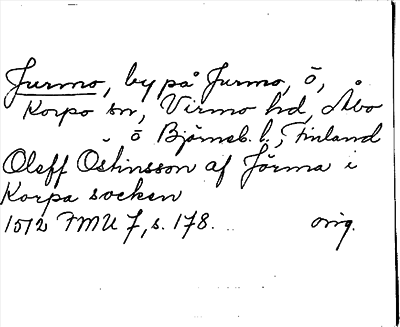 Jurmo, by på Jurmo, ö,
Korpo sn, Virmo hd, Åbo
o Björneb. l., Finland
Oleff Ostinsson af Jörma i
Korpa socken
1512 FMU 7, s. 178. orig.